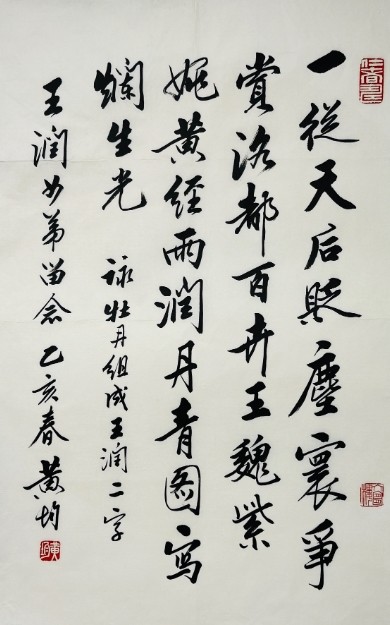 一從天后貶塵寰爭
賞洛都百卉王魏紫
姚黄經雨潤丹青图写
爛生光 詠牡丹組成王潤二字
王潤女弟留念 乙亥春 黄均